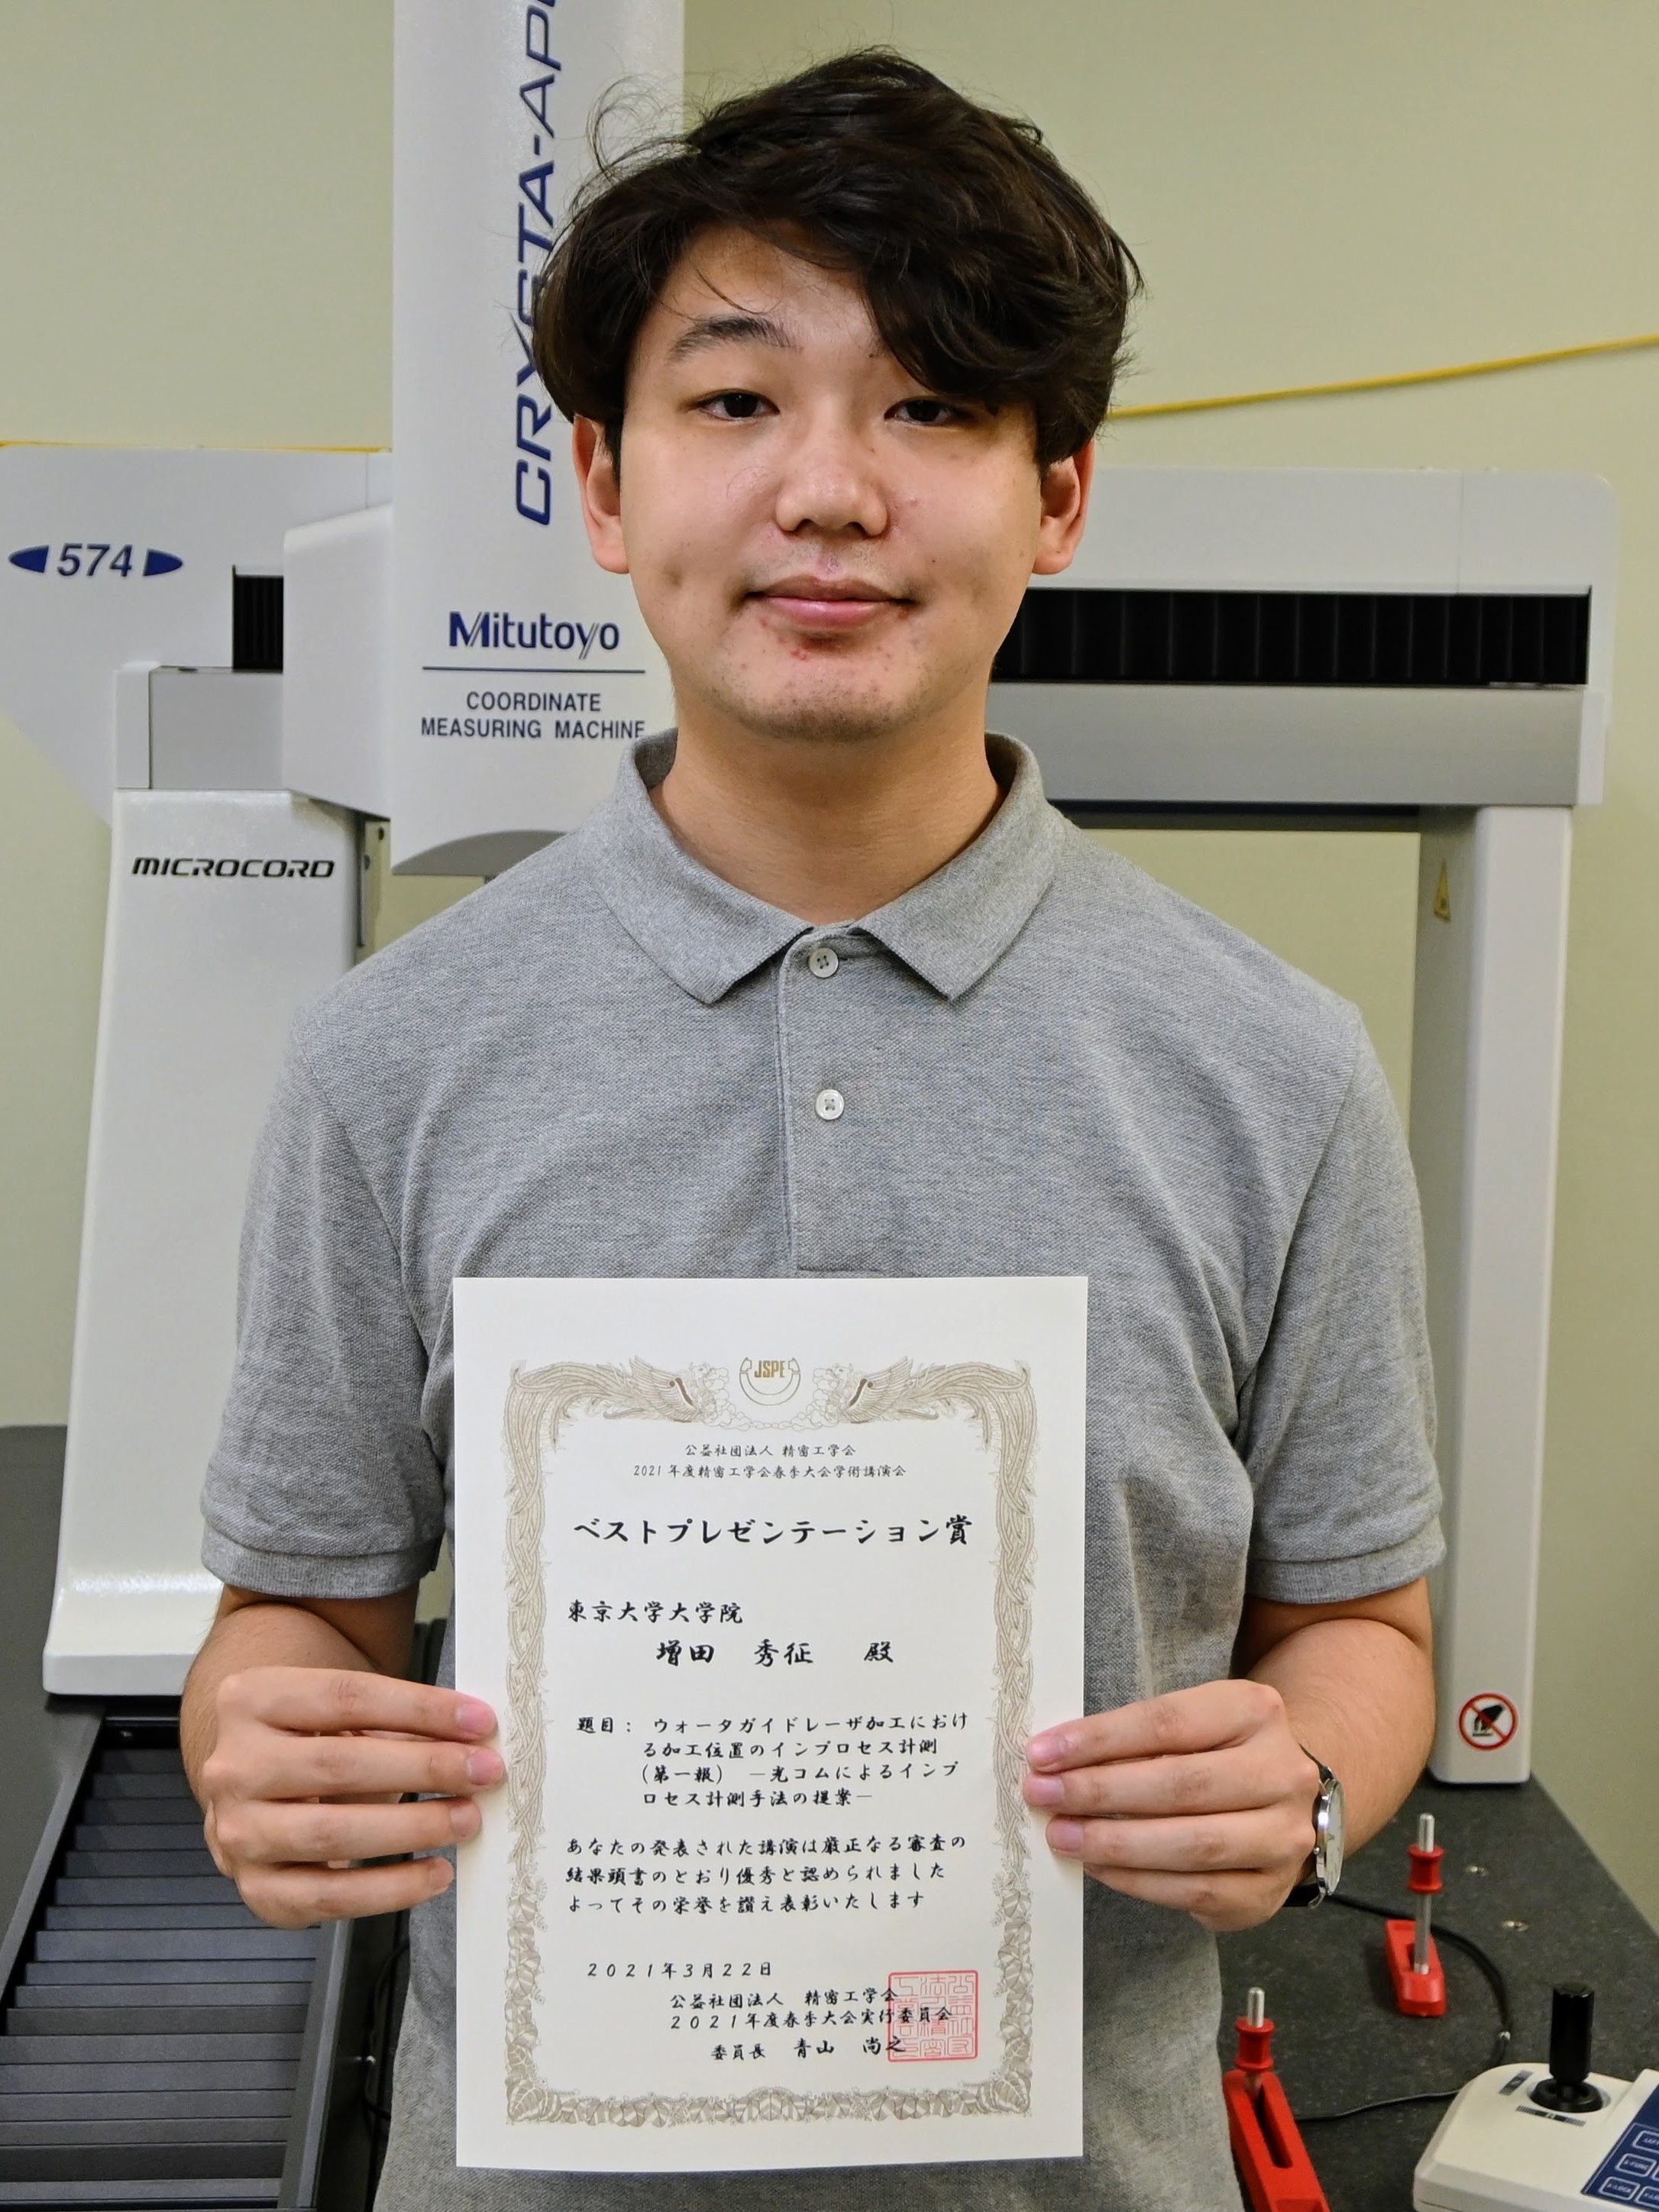 CRYSTA-AP
574
Mitutoyo
COORDINATE
MEASURING MACHINE
MICROCORD
JSPE
公益社団法人 精密工学会
2021年度精密工学会春季大会学術講演会
ベストプレゼンテーション賞
東京大学大学院
増田 秀征 殿
題目： ウォータガイドレーザ加工におけ
る加工位置のインプロセス計測
(第一報) －光コムによるインプ
ロセス計測手法の提案－
あなたの発表された講演は厳正なる審査の
結果頭書のとおり優秀と認められました
よってその栄誉を讃え表彰いたします
2021年3月22日
公益社団法人 精密工学会
2021年度春季大会実行委員会
委員長 青山 尚之